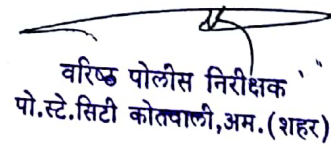 वरिष्ठ पोलीस निरीक्षक
पो.स्टे.सिटी कोतवाली,अम.(शहर)